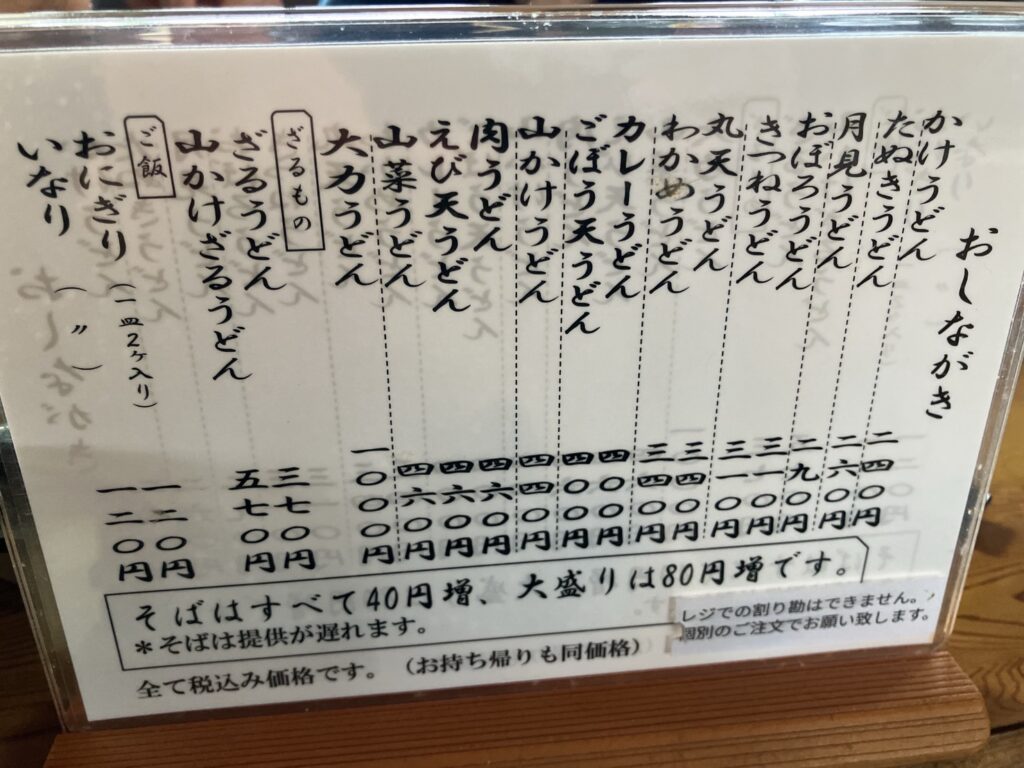 おしながき
かけうどん 二四〇円
たぬきうどん 二六〇円
月見うどん 二九〇円
おぼろうどん 三一〇円
きつねうどん 三一〇円
丸天うどん 三四〇円
わかめうどん 三四〇円
カレーうどん 四〇〇円
ごぼう天うどん 四〇〇円
山かけうどん 四四〇円
肉うどん 四六〇円
えび天うどん 四六〇円
山菜うどん 四六〇円
大力うどん 一〇〇〇円
ざるもの
ざるうどん 三七〇円
山かけざるうどん 五七〇円
ご飯
おにぎり(一皿2ヶ入り) 一二〇円
いなり(〃) 一二〇円
そばはすべて40円増、大盛りは80円増です。
*そばは提供が遅れます。
レジでの割り勘はできません。
個別のご注文でお願い致します。
全て税込み価格です。(お持ち帰りも同価格)